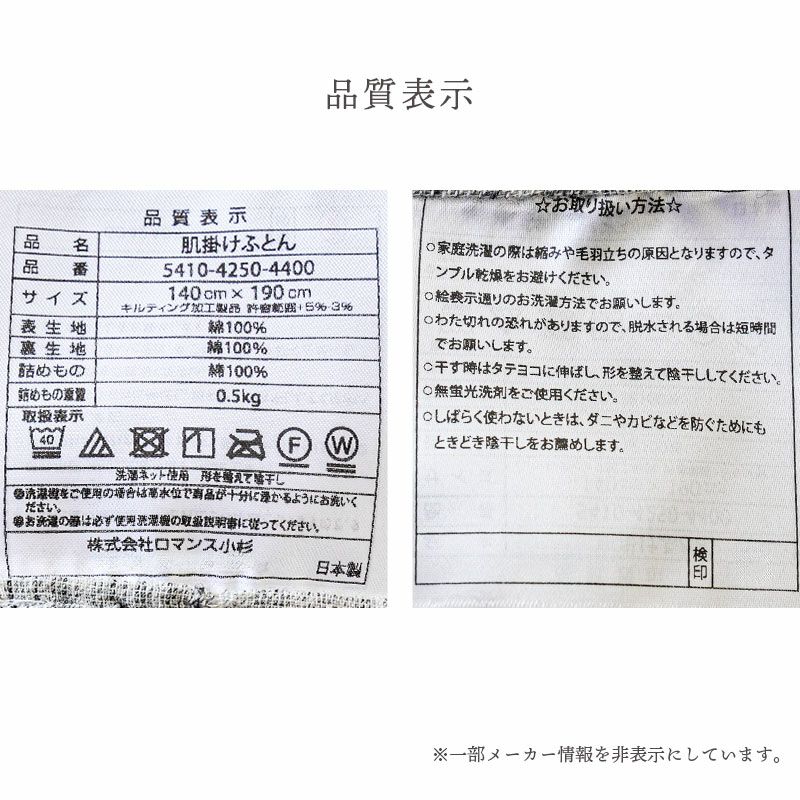 品質表示
品質表示
品名 肌掛けふとん
品番 5410-4250-4400
サイズ 140cm×190cm
キルティング加工製品 許容範囲+5%-3%
表生地 綿100%
裏生地 綿100%
詰めもの 綿100%
詰めもの重量 0.5kg
取扱表示
40 F W
洗濯ネット使用 形を整えて陰干し
●洗濯機をご使用の場合は高水位で商品が十分に浸かるようにお洗いく
ださい。
●お洗濯の際は必ず使用洗濯機の取扱説明書に従ってください。
株式会社ロマンス小杉
日本製
☆お取り扱い方法☆
○家庭洗濯の際は縮みや毛羽立ちの原因となりますので、タ
ンブル乾燥をお避けください。
○絵表示通りのお洗濯方法でお願いします。
○わた切れの恐れがありますので、脱水される場合は短時間
でお願いします。
○干す時はタテヨコに伸ばし、形を整えて陰干ししてください。
○無蛍光洗剤をご使用ください。
○しばらく使わないときは、ダニやカビなどを防ぐためにも
ときどき陰干しをお薦めします。
検印
※一部メーカー情報を非表示にしています。